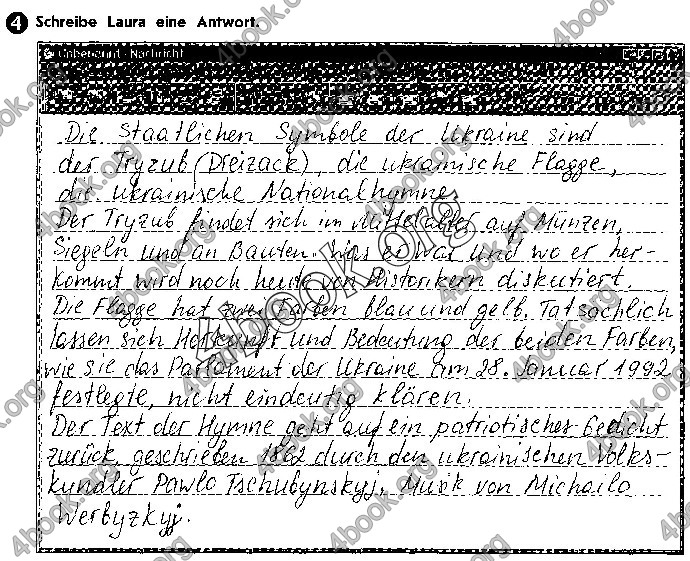 4 Schreibe Laura eine Antwort.
Unbenannt - Nachricht
Die Staatlichen Symbole der Ukraine sind
der Tryzub (Dreizack), die ukrainische Flagge,
die ukrainische Nationalhymne.
Der Tryzub findet sich im Mittelalter auf Münzen,
Siegeln und an Bauten. Was er war und wo er her-
kommt wird noch heute von Historikern diskutiert.
Die Flagge hat zwei Farben blau und gelb. Tatsächlich
lassen sich Herkunft und Bedeutung der beiden Farben,
wie sie das Parlament der Ukraine am 28. Januar 1992
festlegte, nicht eindeutig klären.
Der Text der Hymne geht auf ein patriotisches Gedicht
zurück geschrieben 1862 durch den ukrainischen Volks-
kundler Pawlo Tschubynskyj, Musik von Michailo
Werbyzkyj.
4book.org